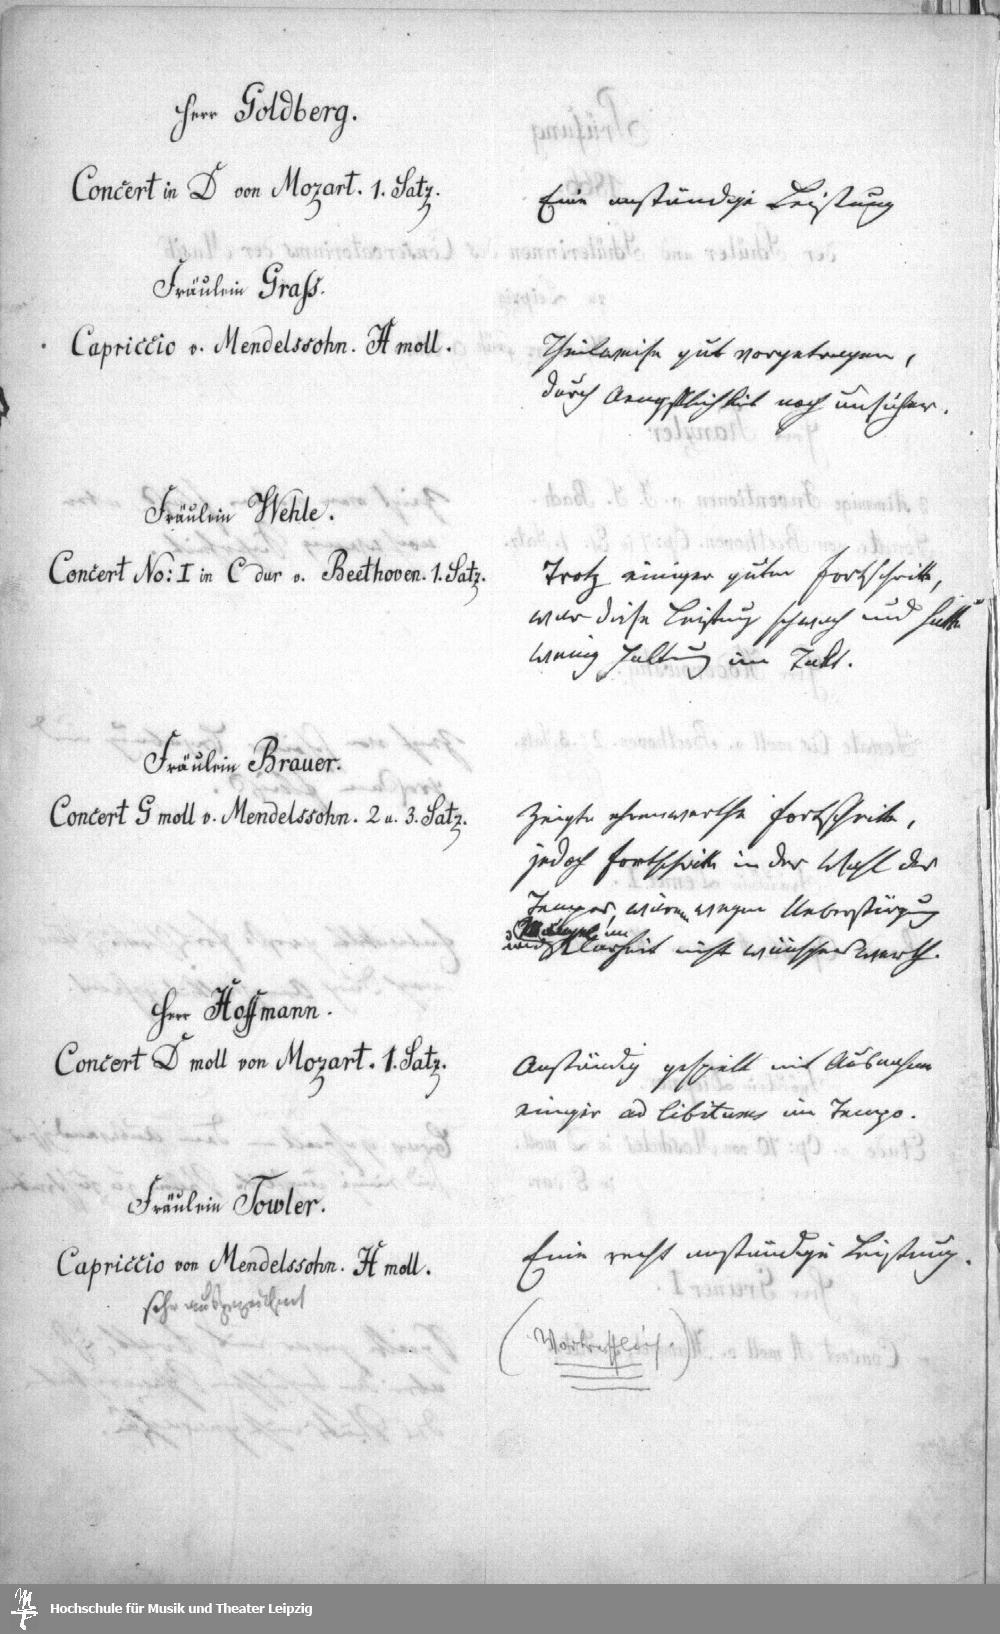 Herr Goldberg.
Concert in D von Mozart. 1. Satz.
Eine anständige Leistung
Fräulein Grass.
Capriccio v. Mendelssohn. H moll.
Theilweise gut vorgetragen,
durch Aengstlichkeit noch unsicher.
Fräulein Wehle.
Concert No: I in C dur v. Beethoven. 1. Satz.
Trotz einiger guter Fortschritte,
war diese Leistung schwach und hatte
wenig Haltung im Takt.
Fräulein Brauer.
Concert G moll v. Mendelssohn. 2 u. 3. Satz.
Zeigte ehrenwerthe Fortschritte,
jedoch Fortschritte in der Wahl der
Tempos, wären wegen Ueberstürzung
und Mangel an Klarheit nicht wünschenswerth.
Herr Hoffmann.
Concert D moll von Mozart. 1. Satz.
Anständig gespielt mit Ausnahme
einiger ad libitums im Tempo.
Fräulein Towler.
Capriccio von Mendelssohn. H moll.
Eine recht anständige Leistung.
sehr ausgezeichnet
(Vortrefflich.)
Hochschule für Musik und Theater Leipzig